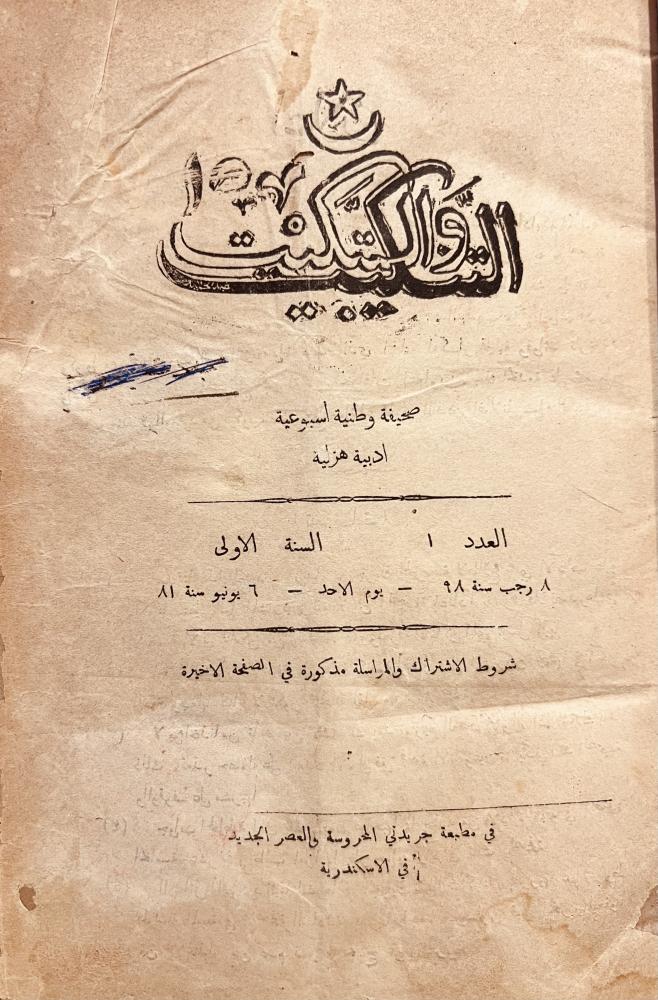 التنكيت والتبكيت
صحيفة وطنية اسبوعية
ادبية هزلية
العدد ١ السنة الاولى
٨ رجب سنة ٩٨ — يوم الاحد — ٦ يونيو سنة ٨١
شروط الاشتراك والمراسلة مذكورة في الصفحة الاخيرة
في مطبعة جريدتي المحروسة والعصر الجديد
في الاسكندرية